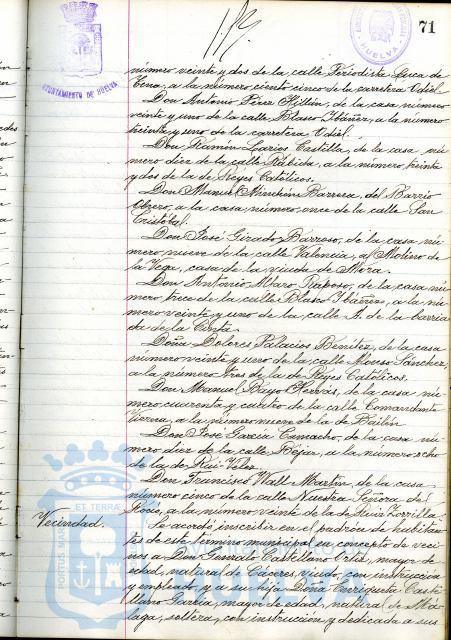 71
AYUNTAMIENTO DE HUELVA
HUELVA
número veinte y dos de la calle Periodista Luca de
Tena, a la número ciento cinco de la carretera Odiel.
Don Antonio Pérez Hillán, de la casa número
veinte y uno de la calle Blasco Ibáñez, a la número
treinta y uno de la carretera Odiel.
Don Ramón Larios Castilla, de la casa nú-
mero diez de la calle Rábida, a la número treinta
y dos de la de Reyes Católicos.
Don Manuel Minchón Barrera, del Barrio
Obrero, a la casa número once de la calle San
Cristóbal.
Don José Girado Barroso, de la casa nú-
mero nueve de la calle Valencia, al Molino de
la Vega, casa de la viuda de Mora.
Don Antonio Maro Raposo, de la casa nú-
mero trece de la calle Blasco Ibáñez, a la nú-
mero veinte y uno de la calle A. de la barria-
da de la Cinta.
Doña Dolores Palacios Benítez, de la casa
número veinte y uno de la calle Alonso Sánchez,
a la número tres de la de Reyes Católicos.
Don Manuel Bayo Hervás, de la casa nú-
mero cuarenta y cuatro de la calle Comandante
Vierna, a la número nueve de la de Bailén
Don José García Camacho, de la casa nú-
mero diez de la calle Béjar, a la número ocho
de la de Rui-Vélez.
Don Francisco Wall Martín, de la casa
número cinco de la calle Nuestra Señora del
Rocío, a la número veinte de la de Ruiz Zorrilla.
Vecindad. Se acordó inscribir en el padrón de habitan-
tes de este término municipal en concepto de veci-
nos a Don Generoso Castellano Ortiz, mayor de
edad, natural de Cáceres, viudo, con instrucción
y empleado, y a su hija Doña Enriqueta Caste-
llano García, mayor de edad, natural de Má-
laga, soltera, con instrucción y dedicada a sus
PORTUS MARIS ET TERRAE